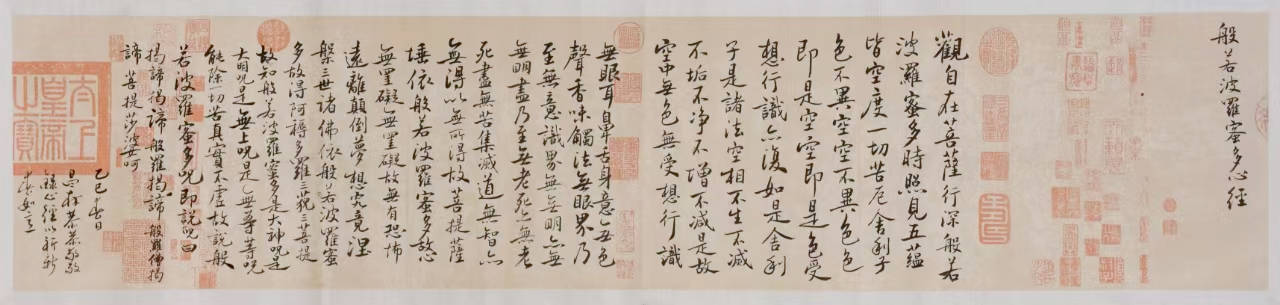 般若波羅蜜多心經
觀自在菩薩行深般若
波羅蜜多時照見五蘊
皆空度一切苦厄舍利子
色不異空空不異色色
即是空空即是色受
想行識亦復如是舍利
子是諸法空相不生不滅
不垢不净不增不減是故
空中無色無受想行識
無眼耳鼻舌身意無色
聲香味觸法無眼界乃
至無意識界無無明亦無
無明盡乃至無老死亦無老
死盡無苦集滅道無智亦
無得以無所得故菩提薩
埵依般若波羅蜜多故心
無罣礙無罣礙故無有恐怖
遠離顛倒夢想究竟涅
槃三世諸佛依般若波羅蜜
多故得阿耨多羅三藐三菩提
故知般若波羅蜜多是大神咒是
大明咒是無上咒是無等等咒
能除一切苦真實不虛故說般
若波羅蜜多咒即說咒曰
揭諦揭諦 般羅揭諦 般羅僧揭
諦 菩提莎婆訶
乙巳春日
心經以祈
太上
皇帝
之寶